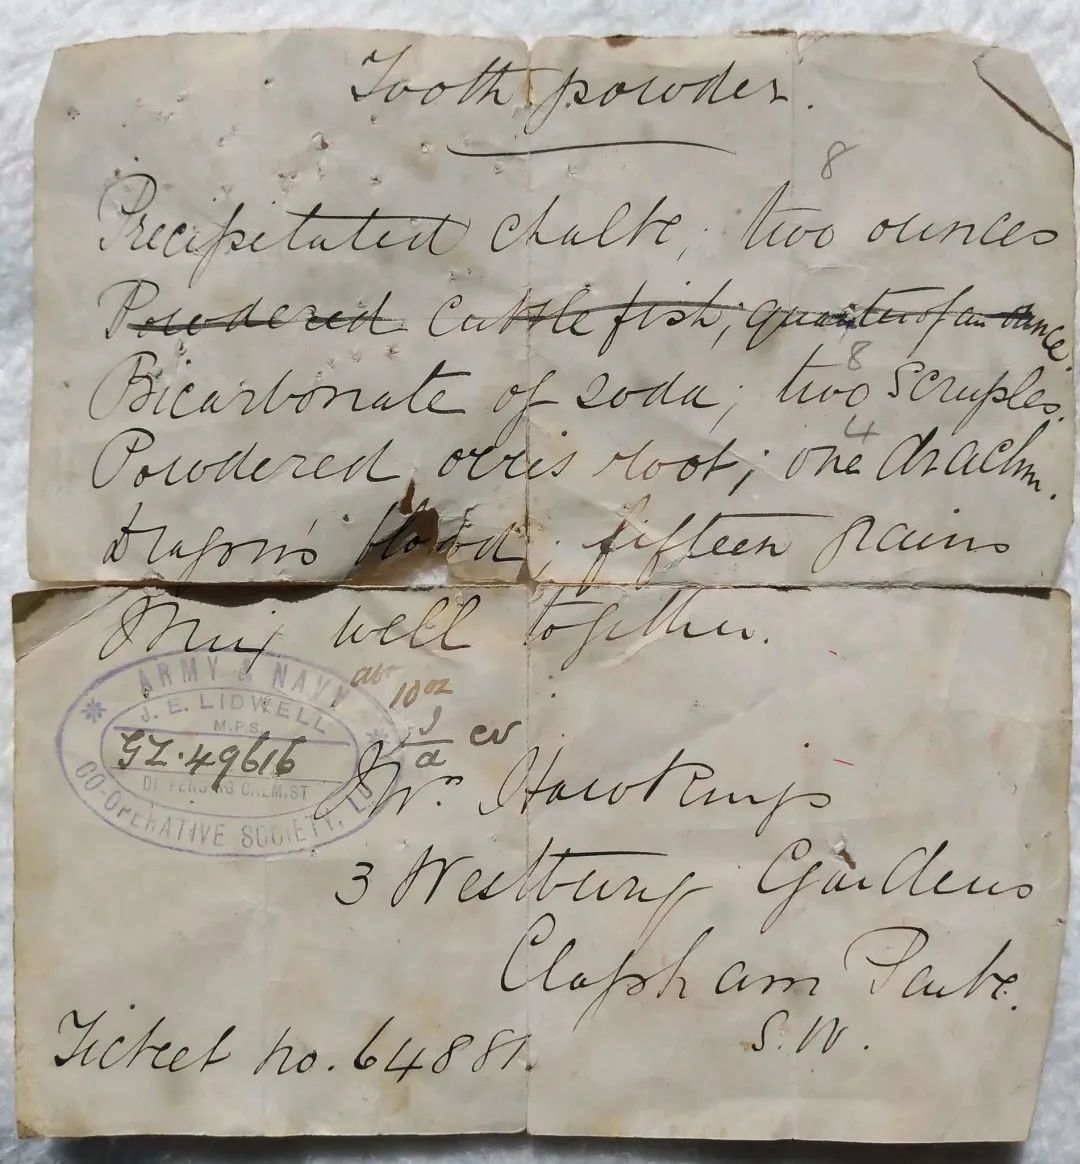 Tooth powder.
8
Precipitated chalk; two ounces
Powdered cuttle fish; quarter of an ounce.
8
Bicarbonate of soda; two scruples.
4
Powdered orris root; one drachm.
Dragon's blood; fifteen grains
Mix well together.
ARMY & NAVY
CO-OPERATIVE SOCIETY, LD
J. E. LIDWELL
M.P.S.
GZ.49616
DISPENSING CHEMIST
10 oz
Hawkings
3 Westbury Gardens
Clapham Park.
S.W.
Ticket no. 64881.